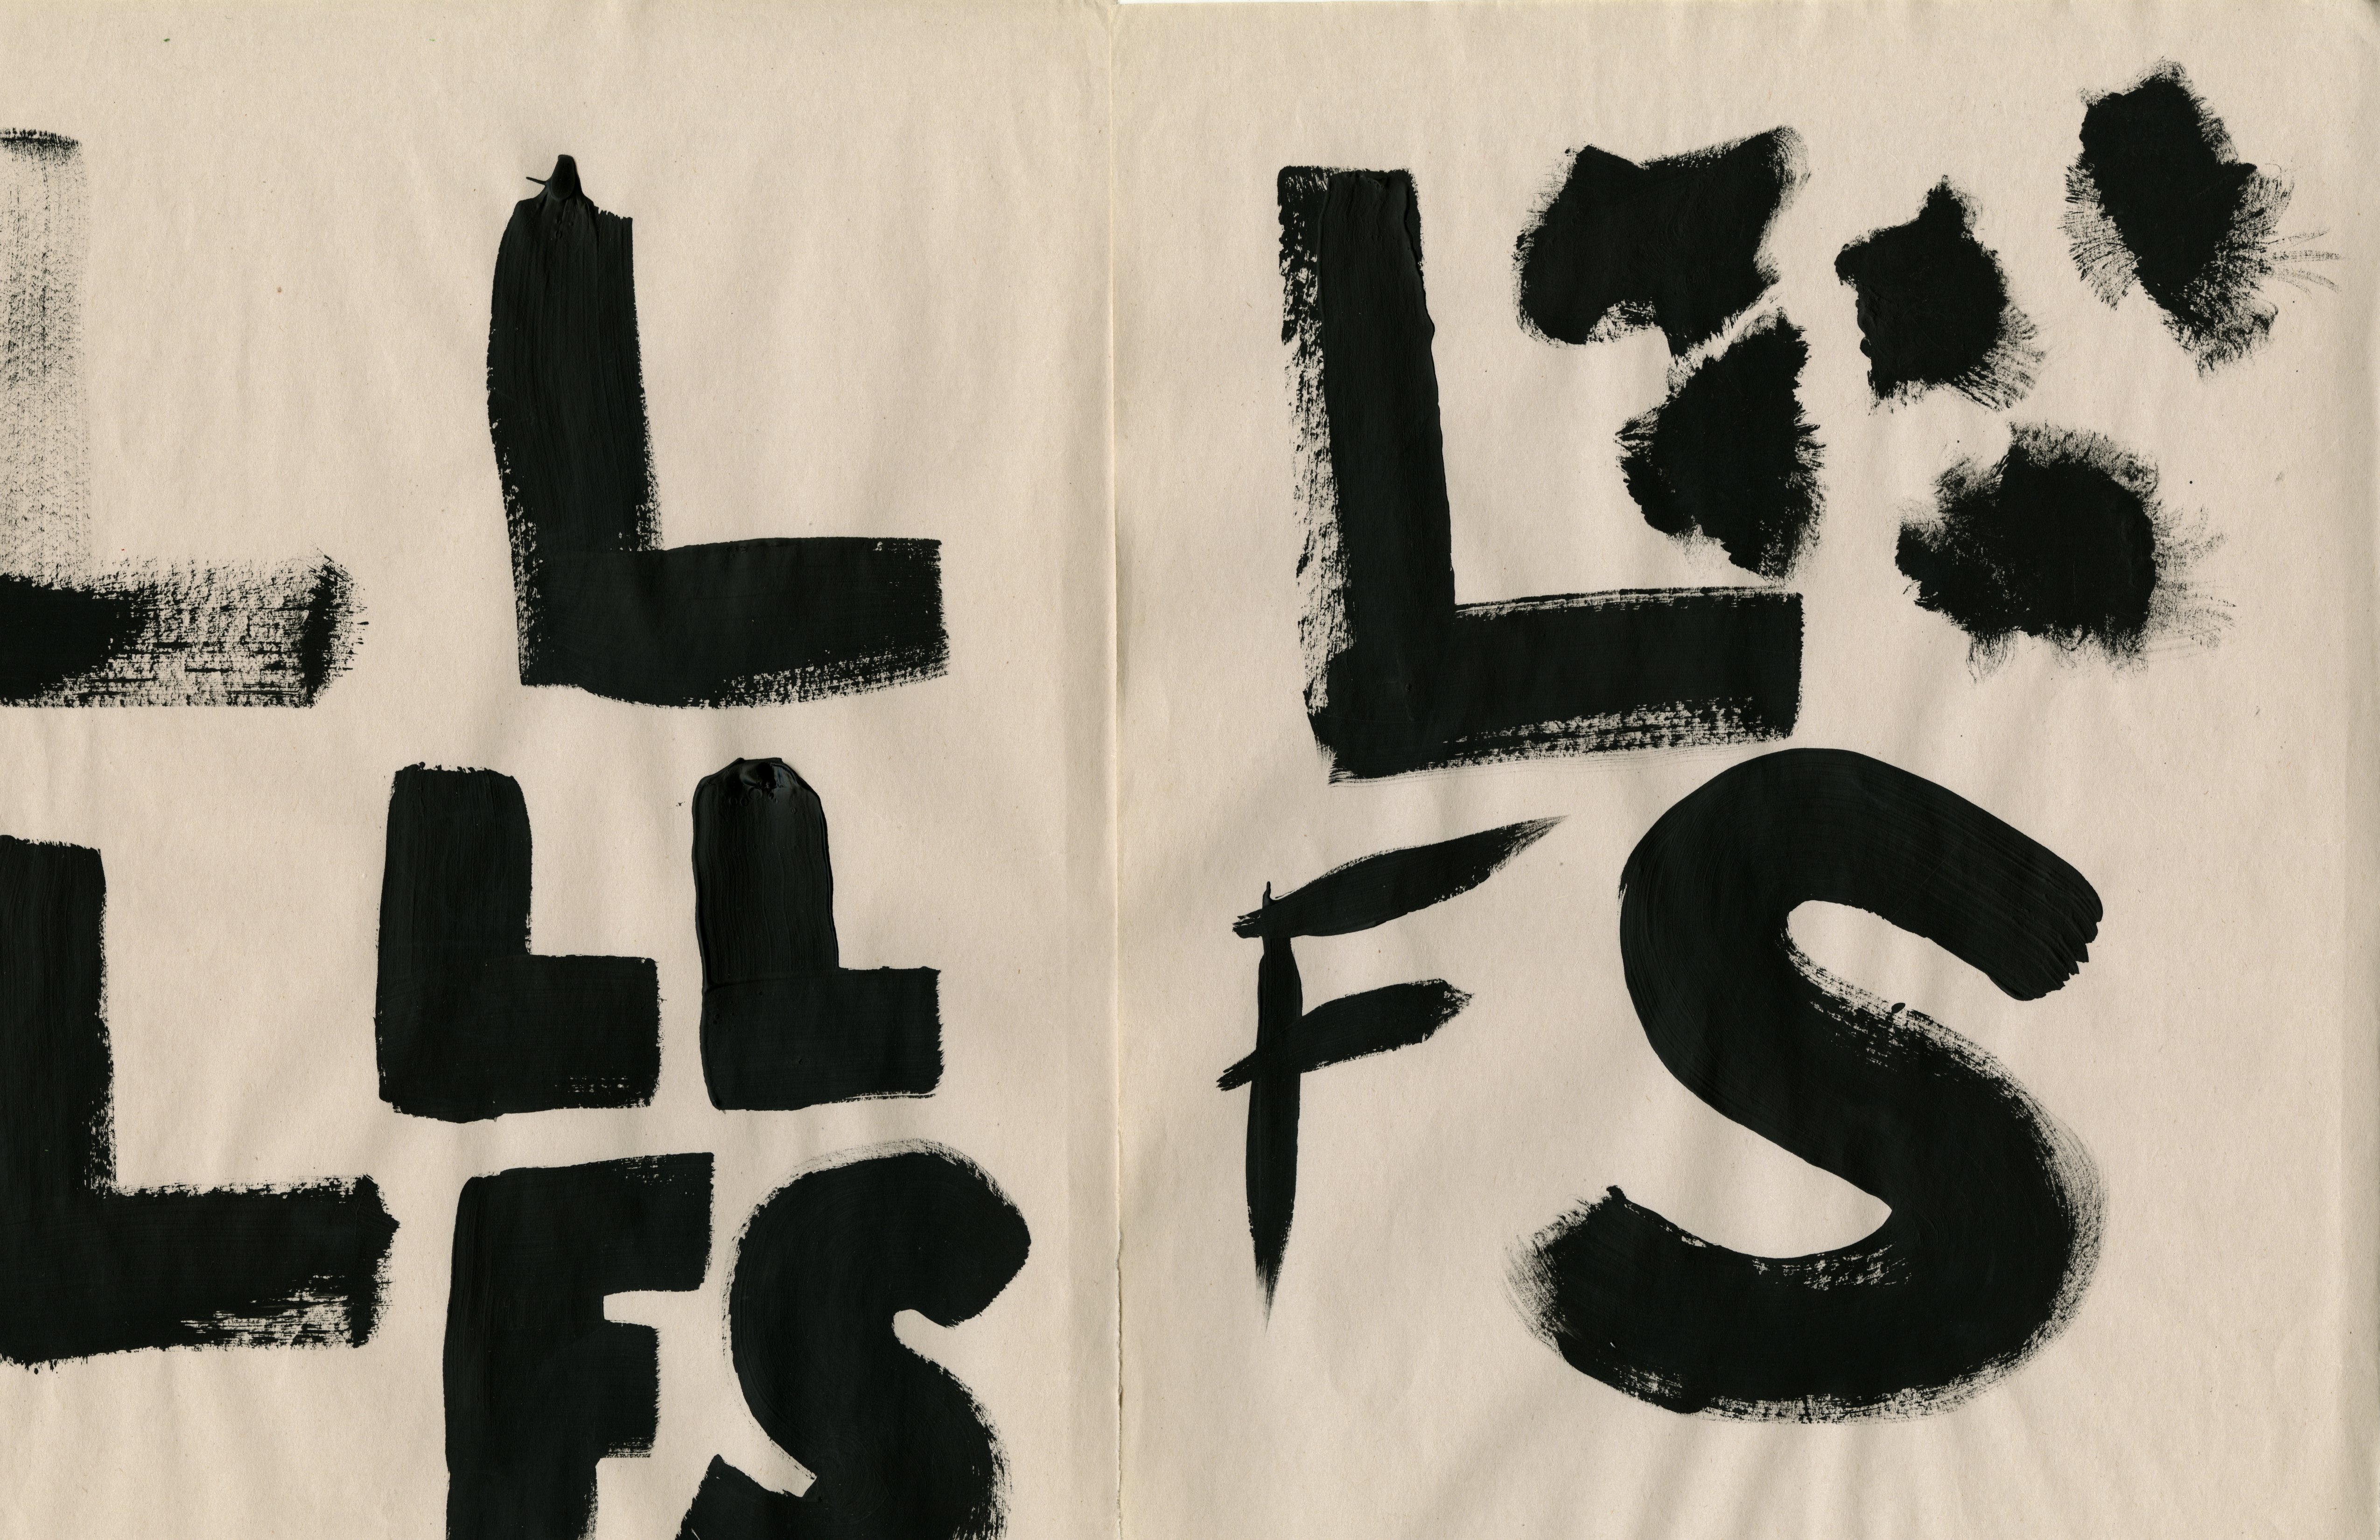 L L L
L L L
F S
F S